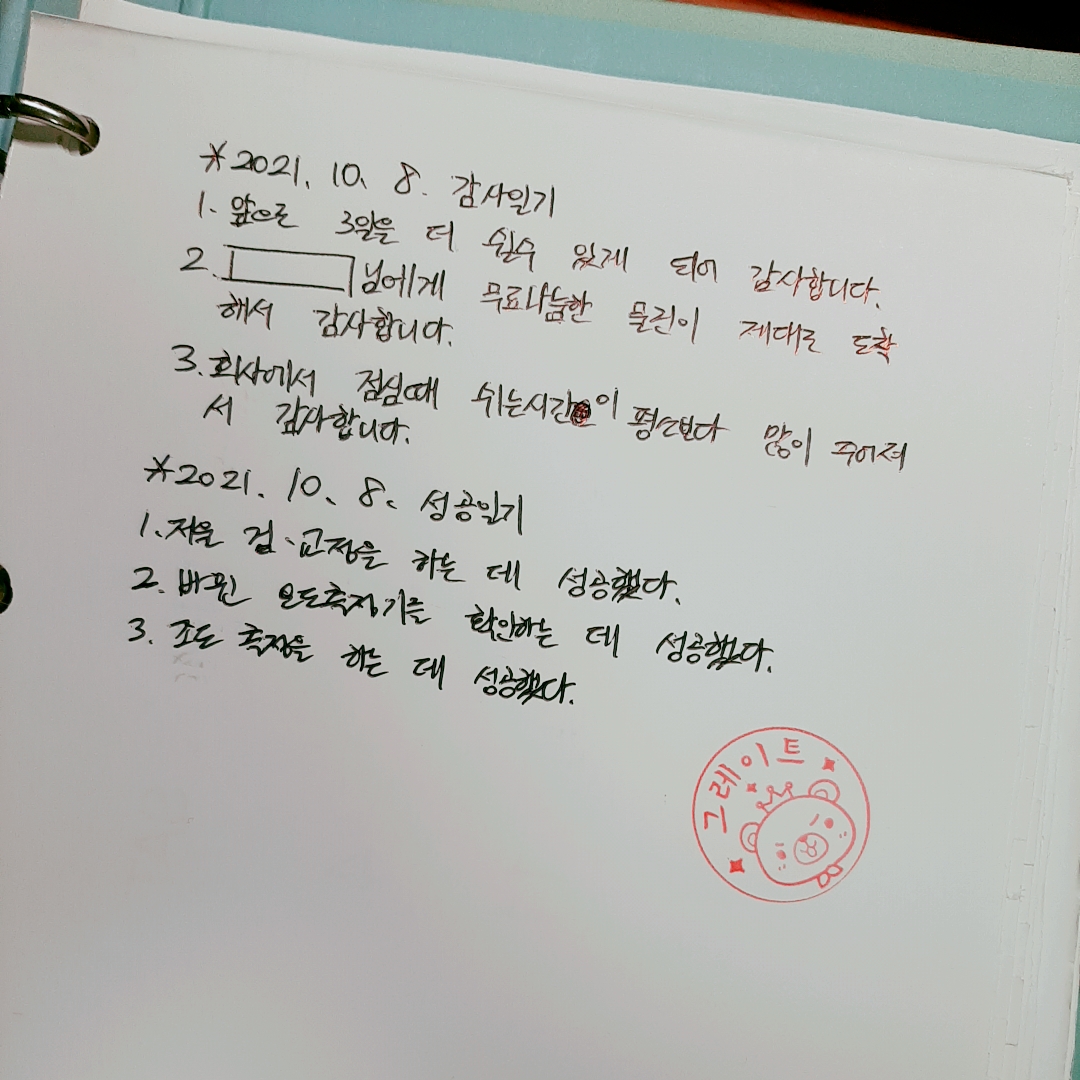 *2021. 10. 8. 감사일기
1. 앞으로 3일을 더 쉴수 있게 되어 감사합니다.
2. 님에게 무료나눔한 물건이 제대로 도착
해서 감사합니다.
3. 회사에서 점심때 쉬는시간이 평소보다 많이 주어져
서 감사합니다.
*2021. 10. 8. 성공일기
1. 저울 검·교정을 하는 데 성공했다.
2. 바뀐 온도측정기를 확인하는 데 성공했다.
3. 조도 측정을 하는 데 성공했다.
그레이트